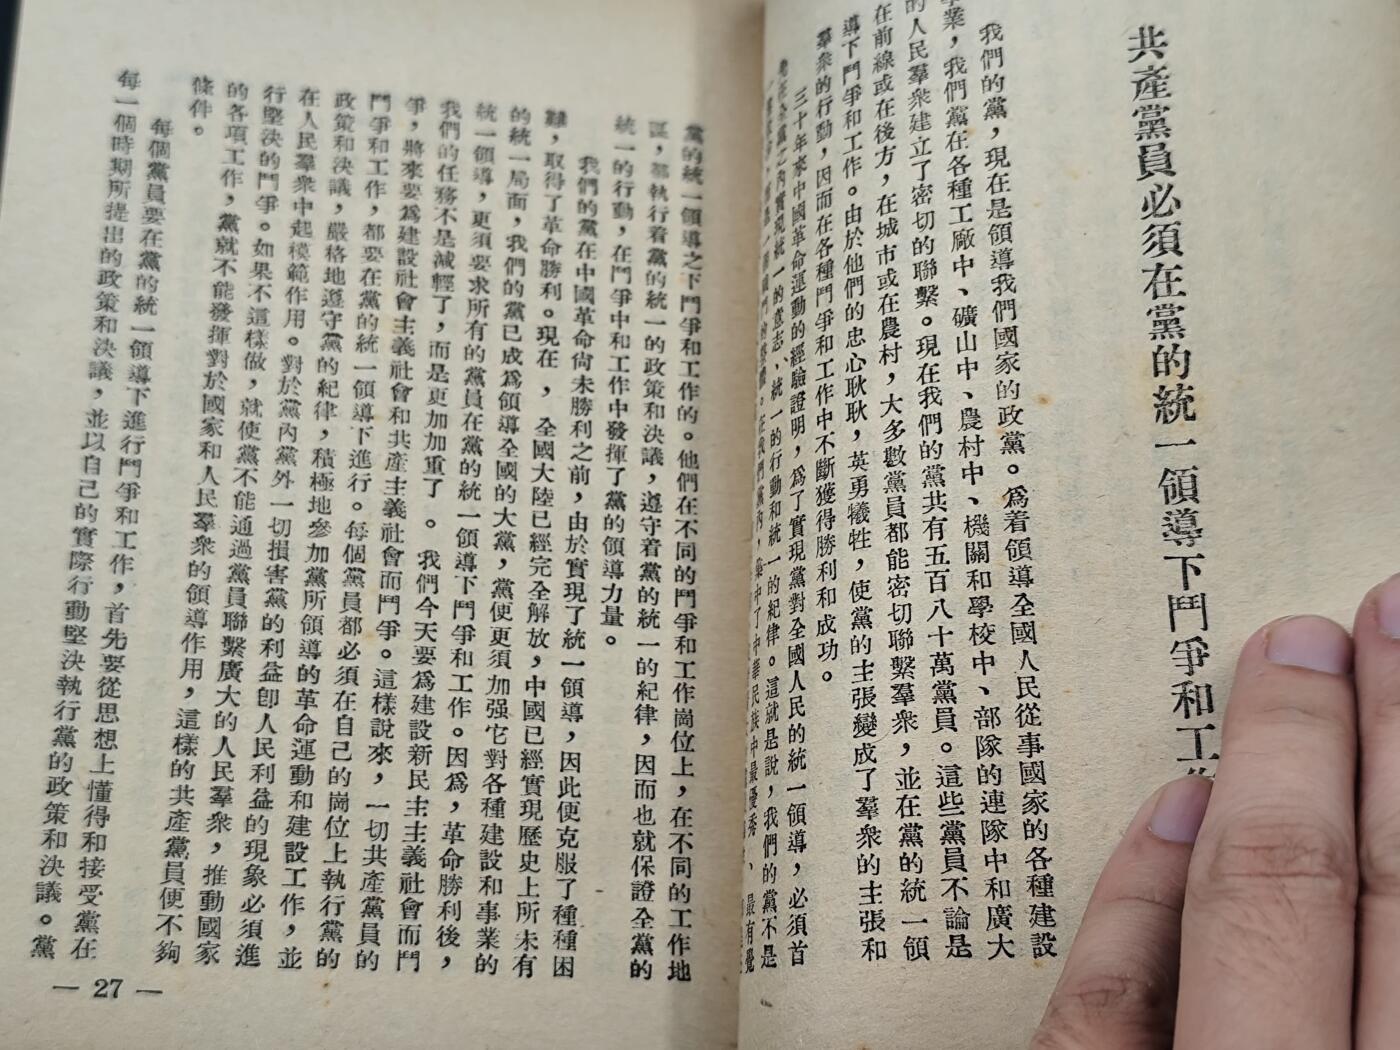 共產黨員必須在黨的統一領導下鬥爭和工
我們的黨，現在是領導我們國家的政黨。爲着領導全國人民從事國家的各種建設
業，我們黨在各種工廠中、礦山中、農村中、機關和學校中、部隊的連隊中和廣大
的人民羣衆建立了密切的聯繫。現在我們的黨共有五百八十萬黨員。這些黨員不論是
在前線或在後方，在城市或在農村，大多數黨員都能密切聯繫羣衆，並在黨的統一領
導下鬥爭和工作。由於他們的忠心耿耿，英勇犧牲，使黨的主張變成了羣衆的主張和
羣衆的行動，因而在各種鬥爭和工作中不斷獲得勝利和成功。
三十年來中國革命運動的經驗證明，爲了實現黨對全國人民的統一領導，必須首
先在全黨之內實現統一的意志、統一的行動和統一的紀律。這就是說，我們的黨不是
在我們黨內，集中了中華民族中最優秀、最有覺
黨的統一領導之下鬥爭和工作的。他們在不同的鬥爭和工作崗位上，在不同的工作地
區，都執行着黨的統一的政策和決議，遵守着黨的統一的紀律，因而也就保證全黨的
統一的行動，在鬥爭中和工作中發揮了黨的領導力量。
我們的黨在中國革命尙未勝利之前，由於實現了統一領導，因此便克服了種種困
難，取得了革命勝利。現在，全國大陸已經完全解放，中國已經實現歷史上所未有
的統一局面，我們的黨已成爲領導全國的大黨，黨便更須加强它對各種建設和事業的
統一領導，更須要求所有的黨員在黨的統一領導下鬥爭和工作。因爲，革命勝利後，
我們的任務不是減輕了，而是更加加重了。我們今天要爲建設新民主主義社會而鬥
爭，將來要爲建設社會主義社會和共產主義社會而鬥爭。這樣說來，一切共產黨員的
鬥爭和工作，都要在黨的統一領導下進行。每個黨員都必須在自己的崗位上執行黨的
政策和決議，嚴格地遵守黨的紀律，積極地參加黨所領導的革命運動和建設工作，並
在人民羣衆中起模範作用。對於黨內黨外一切損害黨的利益卽人民利益的現象必須進
行堅決的鬥爭。如果不這樣做，就使黨不能通過黨員聯繫廣大的人民羣衆，推動國家
的各項工作，黨就不能發揮對於國家和人民羣衆的領導作用，這樣的共產黨員便不夠
條件。
每個黨員要在黨的統一領導下進行鬥爭和工作，首先要從思想上懂得和接受黨在
每一個時期所提出的政策和決議，並以自己的實際行動堅決執行黨的政策和決議。黨
— 27 —